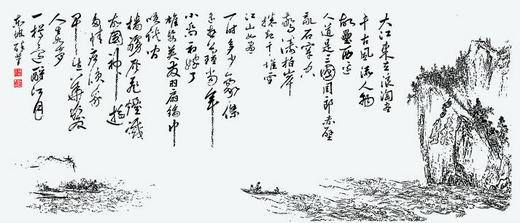 大江东去浪淘尽
千古風流人物
故壘西邊
人道是三國周郎赤壁
亂石穿空
驚濤拍岸
捲起千堆雪
江山如畫
一時多少豪傑
遙想公瑾當年
小喬初嫁了
雄姿英發羽扇綸巾
談笑间
檣櫓灰飛煙滅
故國神遊
多情應笑我
早生華髮
人生如夢
一樽還酹江月
东坡醉筆